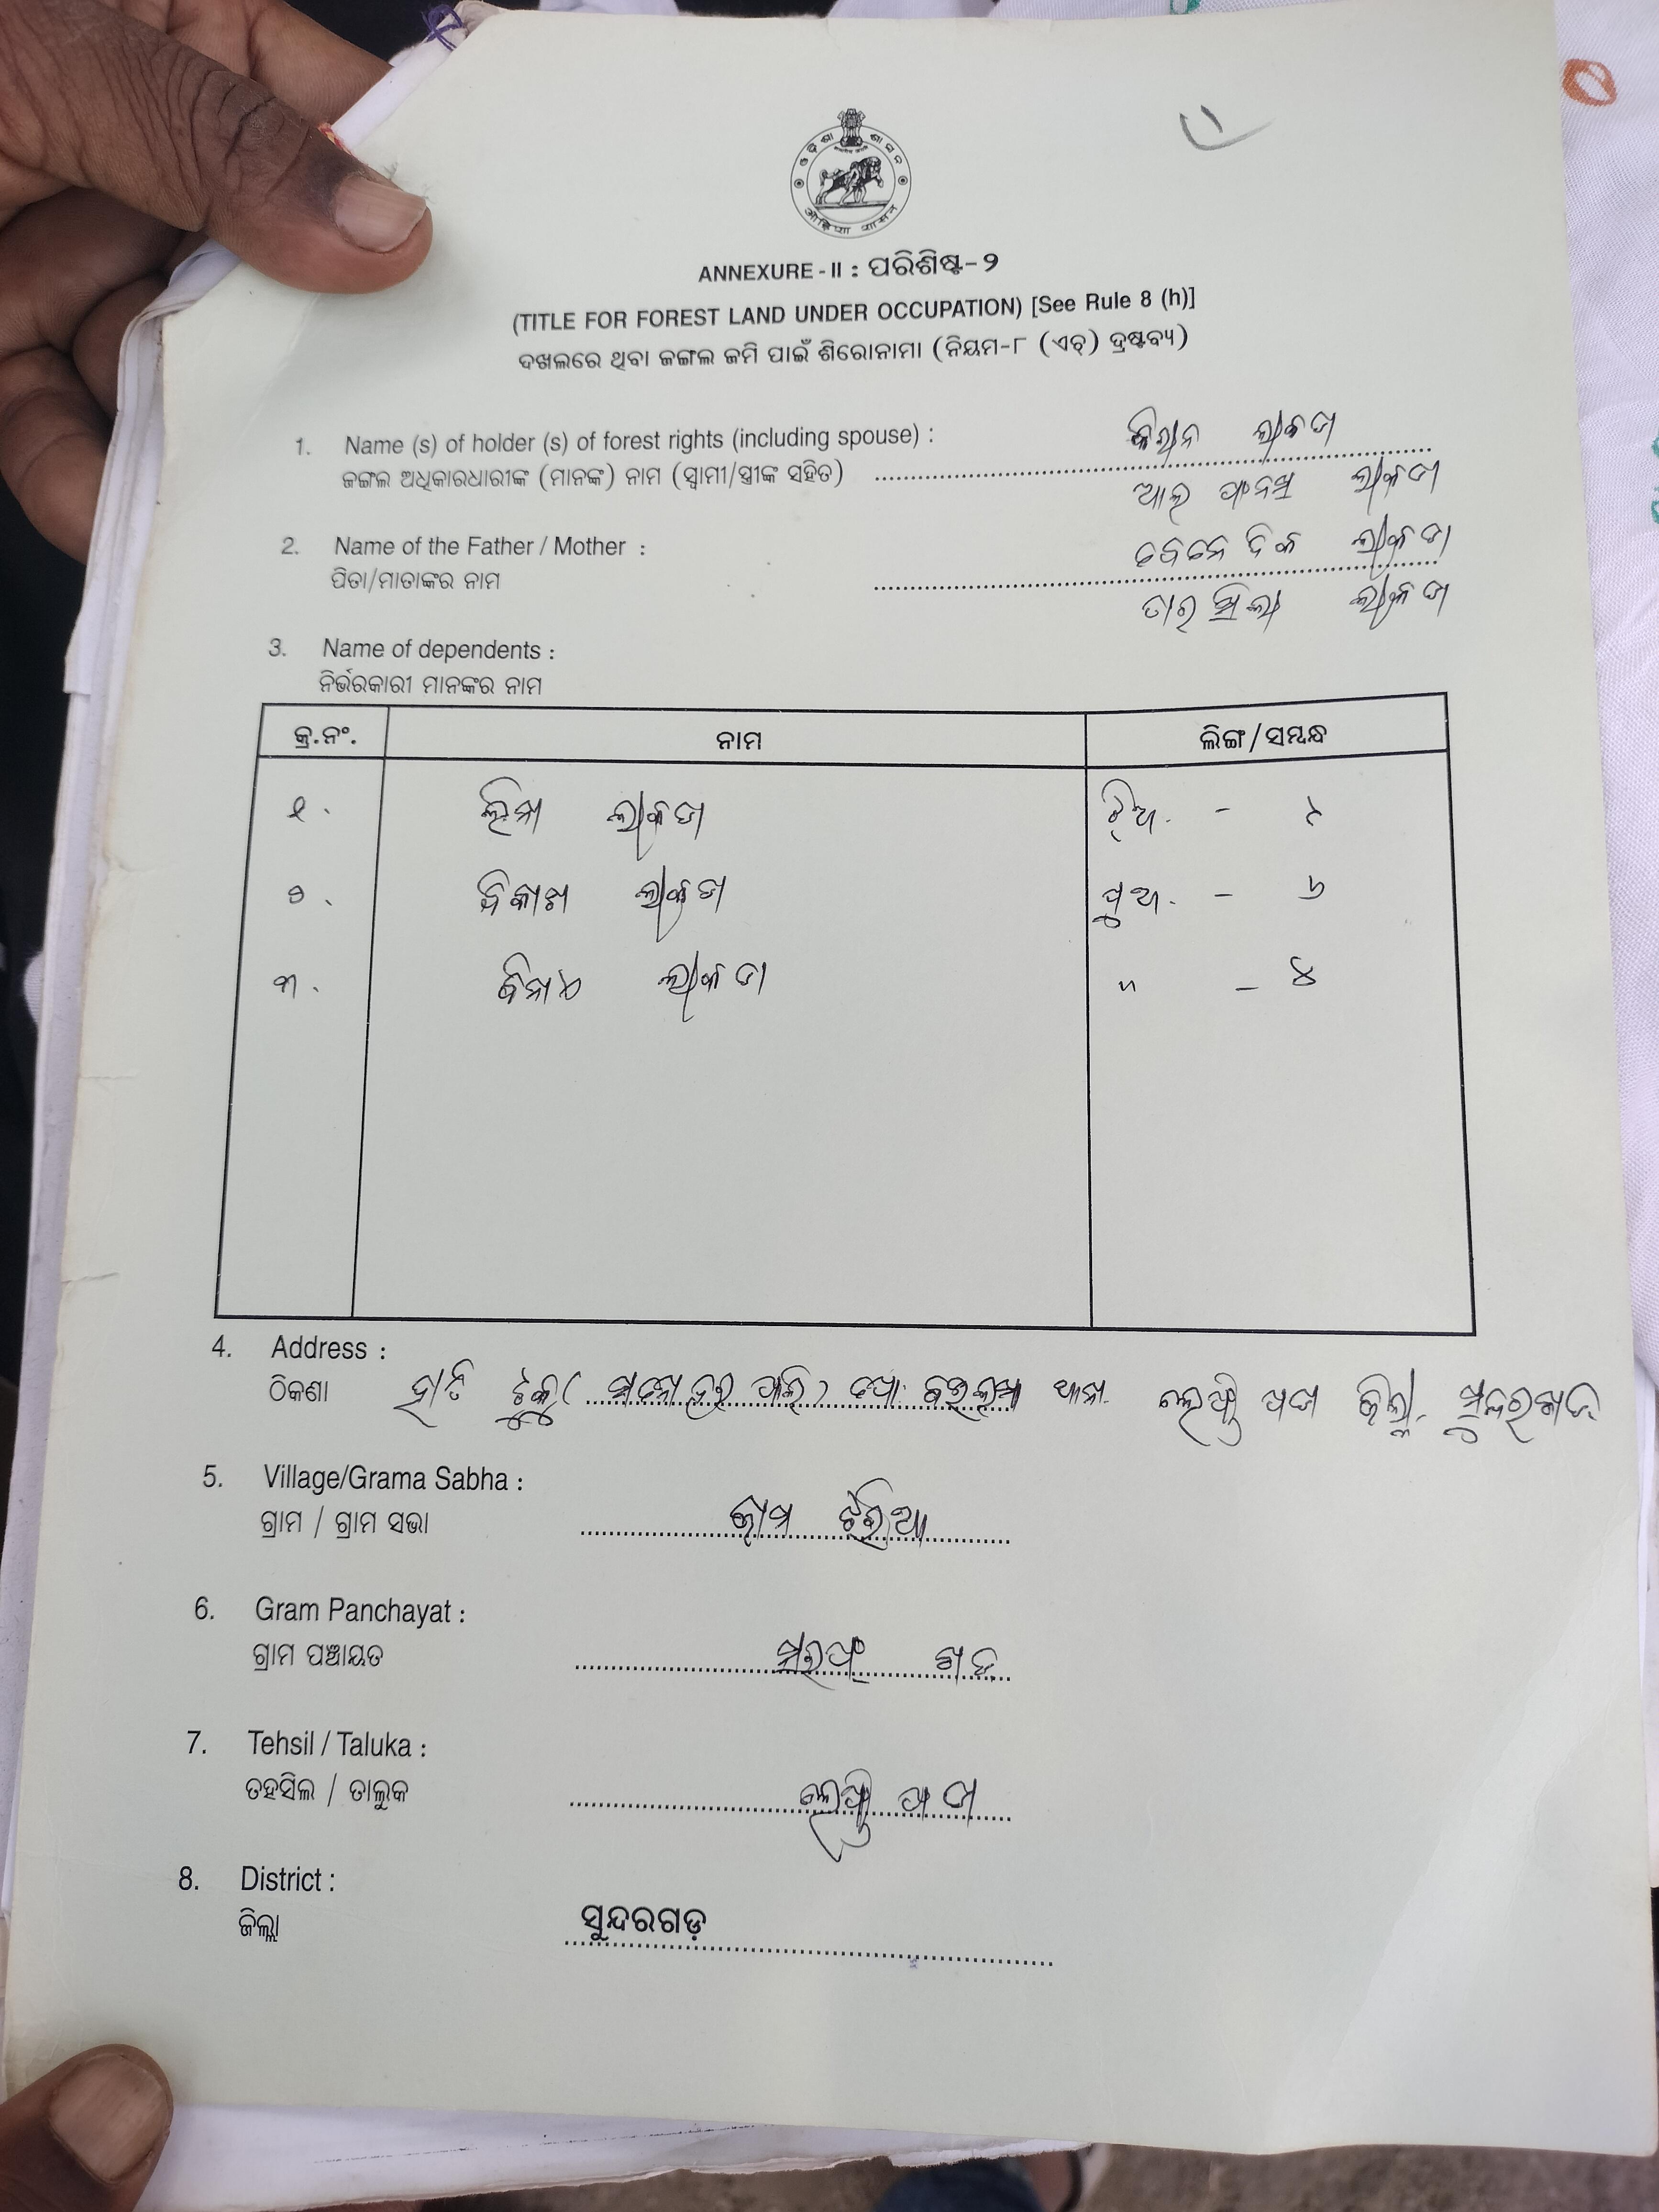 ଓଡ଼ିଶା ଶାସନ
ओड़िशा शासन
ANNEXURE - II : ପରିଶିଷ୍ଟ-୨
(TITLE FOR FOREST LAND UNDER OCCUPATION) [See Rule 8 (h)]
ଦଖଲରେ ଥିବା ଜଙ୍ଗଲ ଜମି ପାଇଁ ଶିରୋନାମା (ନିୟମ-୮ (ଏଚ୍) ଦ୍ରଷ୍ଟବ୍ୟ)
1. Name (s) of holder (s) of forest rights (including spouse) : କିରାନ ଲାକଡା
ଜଙ୍ଗଲ ଅଧିକାରଧାରୀଙ୍କ (ମାନଙ୍କ) ନାମ (ସ୍ୱାମୀ/ସ୍ତ୍ରୀଙ୍କ ସହିତ) ଲାକଡା
2. Name of the Father / Mother : ଲାକଡା
ପିତା/ମାତାଙ୍କର ନାମ ଲାକଡା
3. Name of dependents :
ନିର୍ଭରକାରୀ ମାନଙ୍କର ନାମ
କ୍ର.ନଂ. ନାମ ଲିଙ୍ଗ/ସମ୍ବନ୍ଧ
୧. ଲିମା ଲାକଡା ଝିଅ - ୮
୨. ବିକାଶ ଲାକଡା ପୁଅ - ୬
୩. ଲାକଡା " - ୪
4. Address :
ଠିକଣା ହାତି ଟୁକୁ ଜିଲ୍ଲା ସୁନ୍ଦରଗଡ
5. Village/Grama Sabha :
ଗ୍ରାମ / ଗ୍ରାମ ସଭା ଜାମ ଝରିଆ
6. Gram Panchayat :
ଗ୍ରାମ ପଞ୍ଚାୟତ
7. Tehsil / Taluka :
ତହସିଲ / ତାଲୁକ ଲେଫ୍ରିପଡା
8. District :
ଜିଲ୍ଲା ସୁନ୍ଦରଗଡ଼